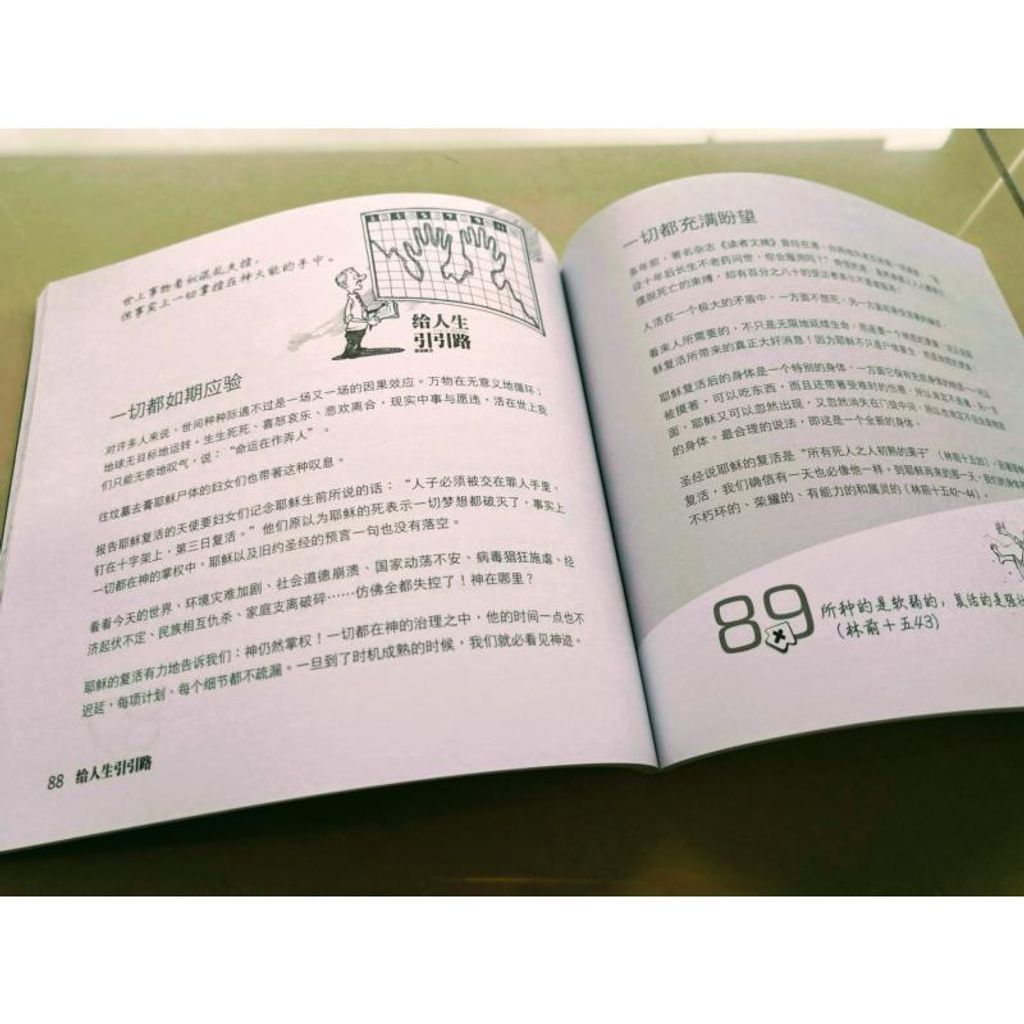 世上事物看似混乱失控，
但事实上一切掌握在神大能的手中。
给人生
引引路
一切都如期应验
对许多人来说，世间种种际遇不过是一场又一场的因果效应。万物在无意义地循环；
地球无目标地运转。生生死死、喜怒哀乐、悲欢离合，现实中事与愿违，活在世上我
们只能无奈地叹气，说：“命运在作弄人”。
往坟墓去膏耶稣尸体的妇女们也带著这种叹息。
报告耶稣复活的天使要妇女们记念耶稣生前所说的话：“人子必须被交在罪人手里，
钉在十字架上，第三日复活。”他们原以为耶稣的死表示一切梦想都破灭了，事实上
一切都在神的掌权中，耶稣以及旧约圣经的预言一句也没有落空。
看看今天的世界，环境灾难加剧、社会道德崩溃、国家动荡不安、病毒猖狂施虐、经
济起伏不定、民族相互仇杀、家庭支离破碎……仿佛全都失控了！神在哪里？
耶稣的复活有力地告诉我们：神仍然掌权！一切都在神的治理之中，他的时间一点也不
迟延，每项计划、每个细节都不疏漏。一旦到了时机成熟的时候，我们就必看见神迹。
88 给人生引引路
一切都充满盼望
多年前，著名杂志《读者文摘》曾
设十年后长生不老药问世，你会服用吗？
摆脱死亡的束缚，却有百分之八十的受访者
人活在一个极大的矛盾中，一方面不想死，另一方面
看来人所需要的，不只是无限地延续生命，而是
稣复活所带来的真正大好消息！因为耶稣不只是
耶稣复活后的身体是一个特别的身体，一方面它
被摸著，可以吃东西，而且还带著受难时的伤害，所以
面，耶稣又可以忽然出现，又忽然消失在门窗中间，所以
的身体。最合理的说法，即这是一个全新的身体。
圣经说耶稣的复活是“所有死人之人初熟的果子”（林前十五20），
复活，我们确信有一天也必像他一样，到耶稣再来的那一天，我们的身体
不朽坏的、荣耀的、有能力的和属灵的（林前十五42～44）。
89
所种的是软弱的，复活的是强
（林前十五43）